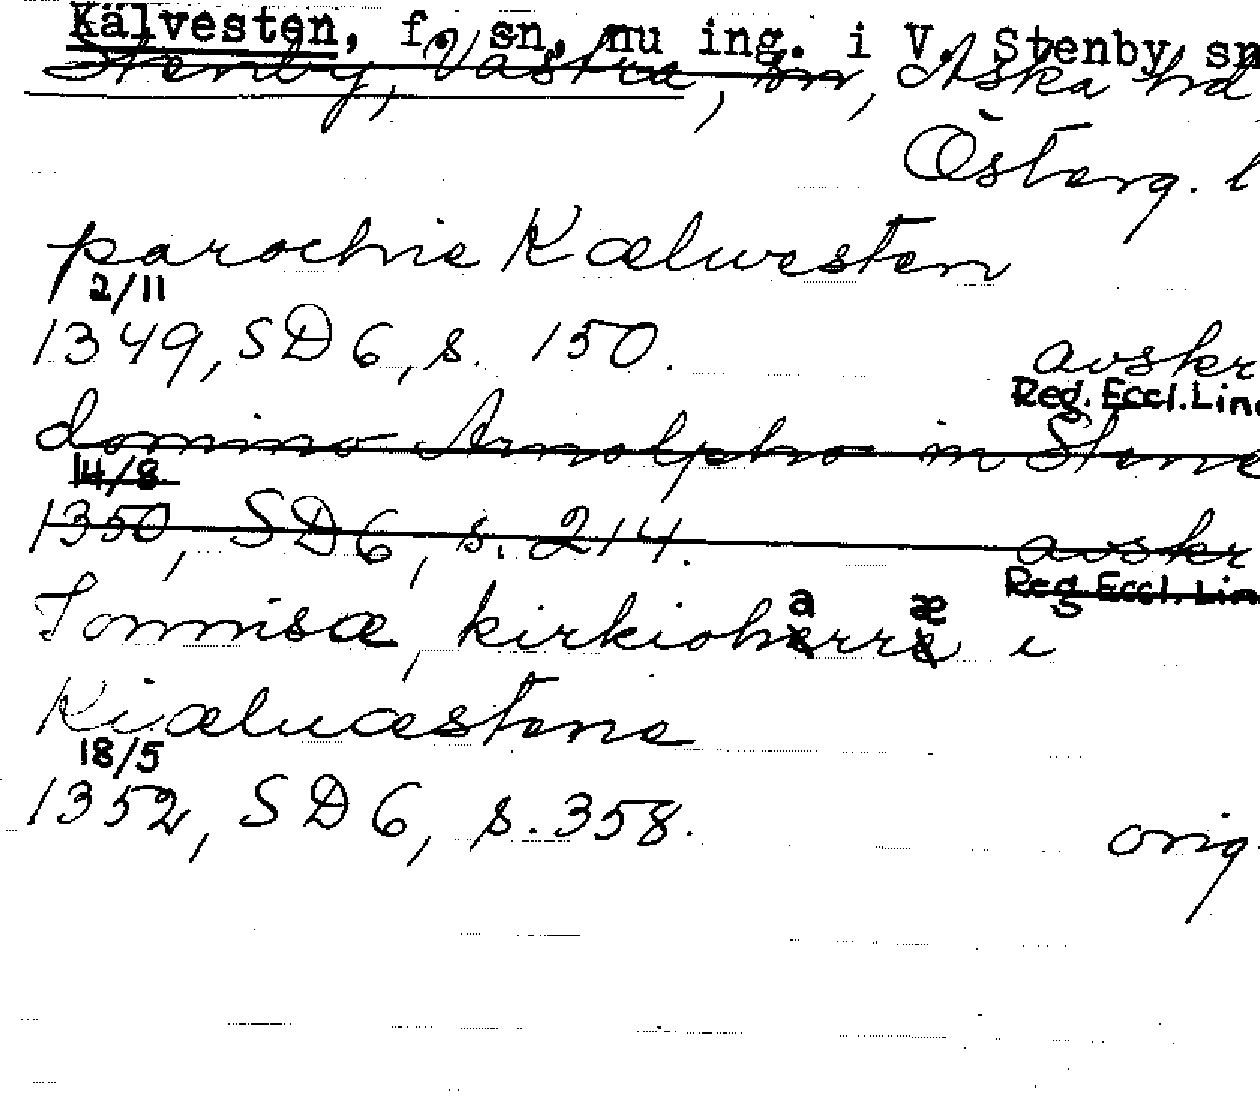 Kälvesten, f. sn, nu ing. i V. Stenby sn
Stenby, Västra, sn, Aska hd
Österg. l
parochie Kælwesten
2/11
1349, SD 6, s. 150. avskr
Reg. Eccl. Linc
domino Arnolpho in Stene
14/8
1350, SD 6, s. 214. avskr
Reg. Eccl. Lin
Tommisæ, kirkioharræ i
Kiæluæstene
18/5
1352, SD 6, s. 358. orig